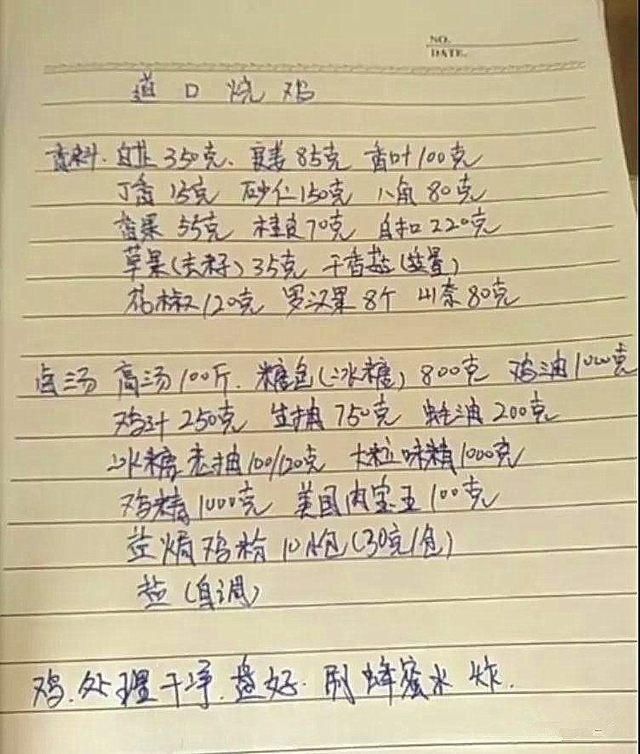 NO.
DATE.
道口烧鸡
香料. 白芷350克、良姜85克 香叶100克
丁香15克 砂仁150克 八角80克
香果55克 桂皮70克 白扣220克
草果(去籽)35克 干香菇(适量)
花椒120克 罗汉果8个 山奈80克
卤汤 高汤100斤. 糖色(冰糖)800克 鸡油1000克
鸡汁250克 生抽750克 蚝油200克
冰糖老抽100/120克 大粒味精1000克
鸡精1000克 美国肉宝王100克
盐焗鸡粉10小包(30克/包)
盐(自调)
鸡.处理干净.盘好.刷蜂蜜水炸.